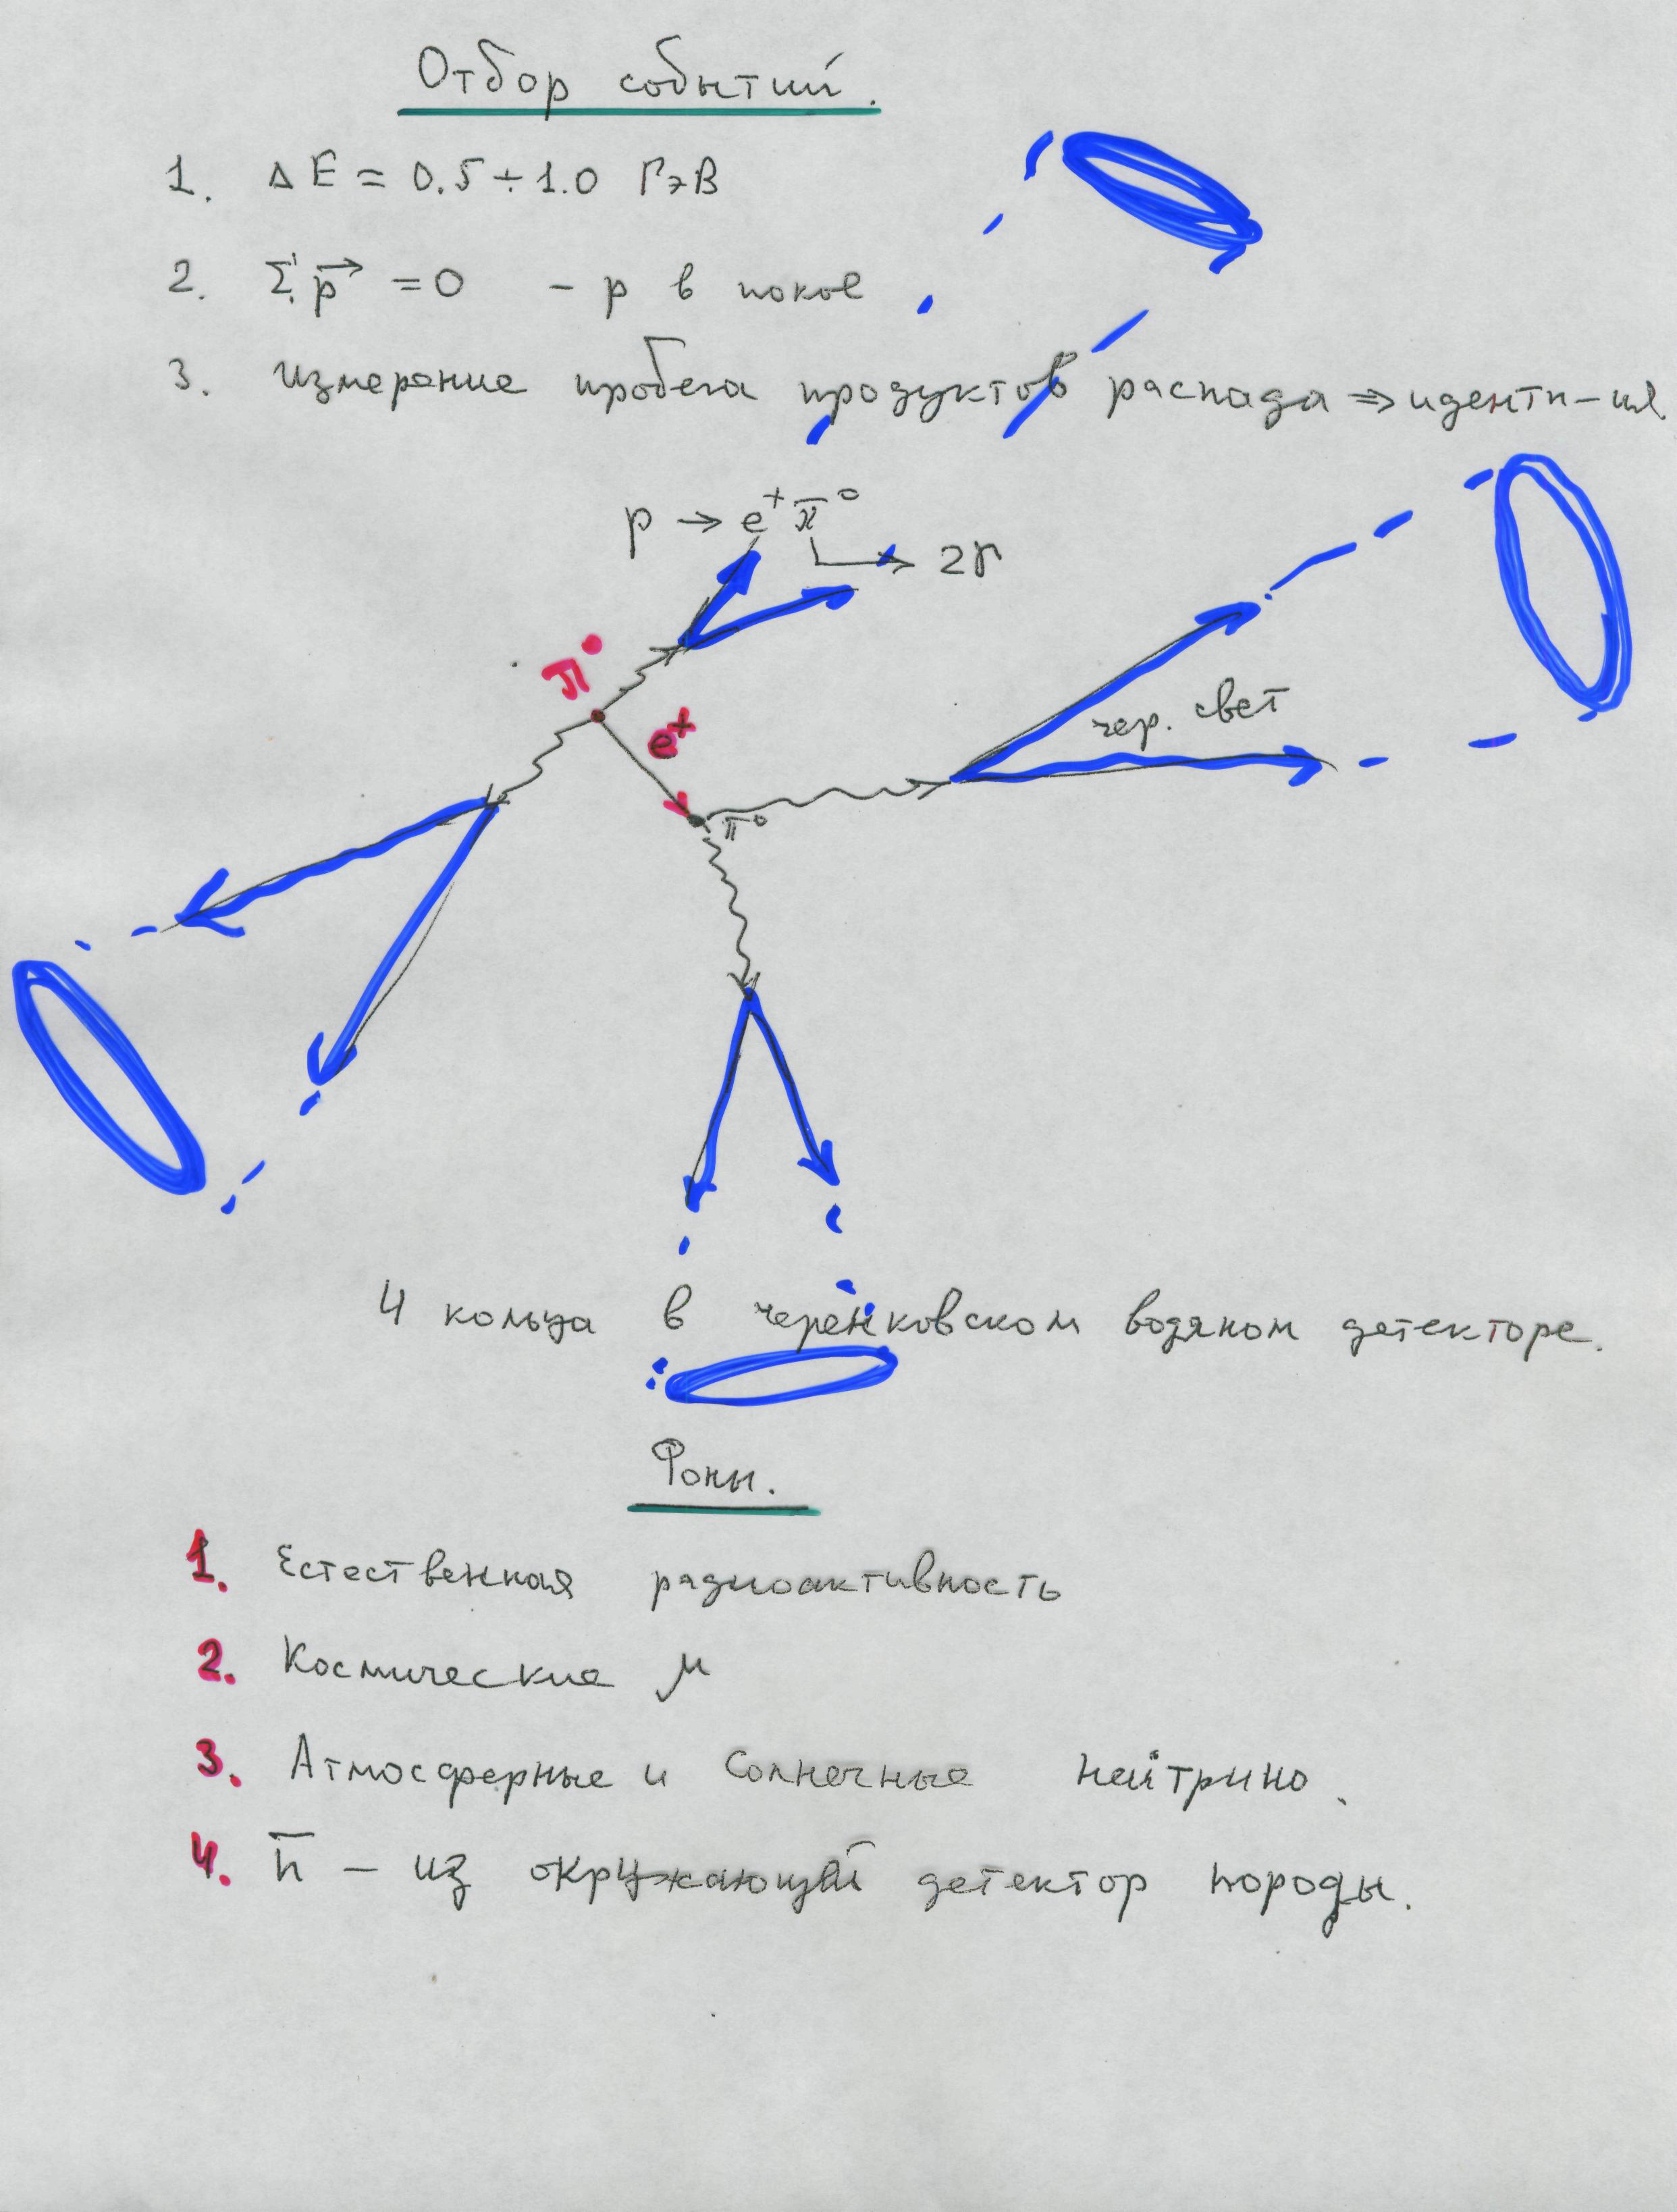 Отбор событий.
1. ΔE = 0.5 ÷ 1.0 ГэВ
2. Σ p⃗ = 0 – p в покое
3. измерение пробега продуктов распада ⇒ иденти-ия.
p → e⁺ π⁰
↳ 2γ
π⁰
e⁺
чер. свет
π⁰
4 кольца в черенковском водяном детекторе.
Фоны.
1. Естественная радиоактивность
2. Космические μ
3. Атмосферные и Солнечные нейтрино.
4. n̅ – из окружающий детектор породы.